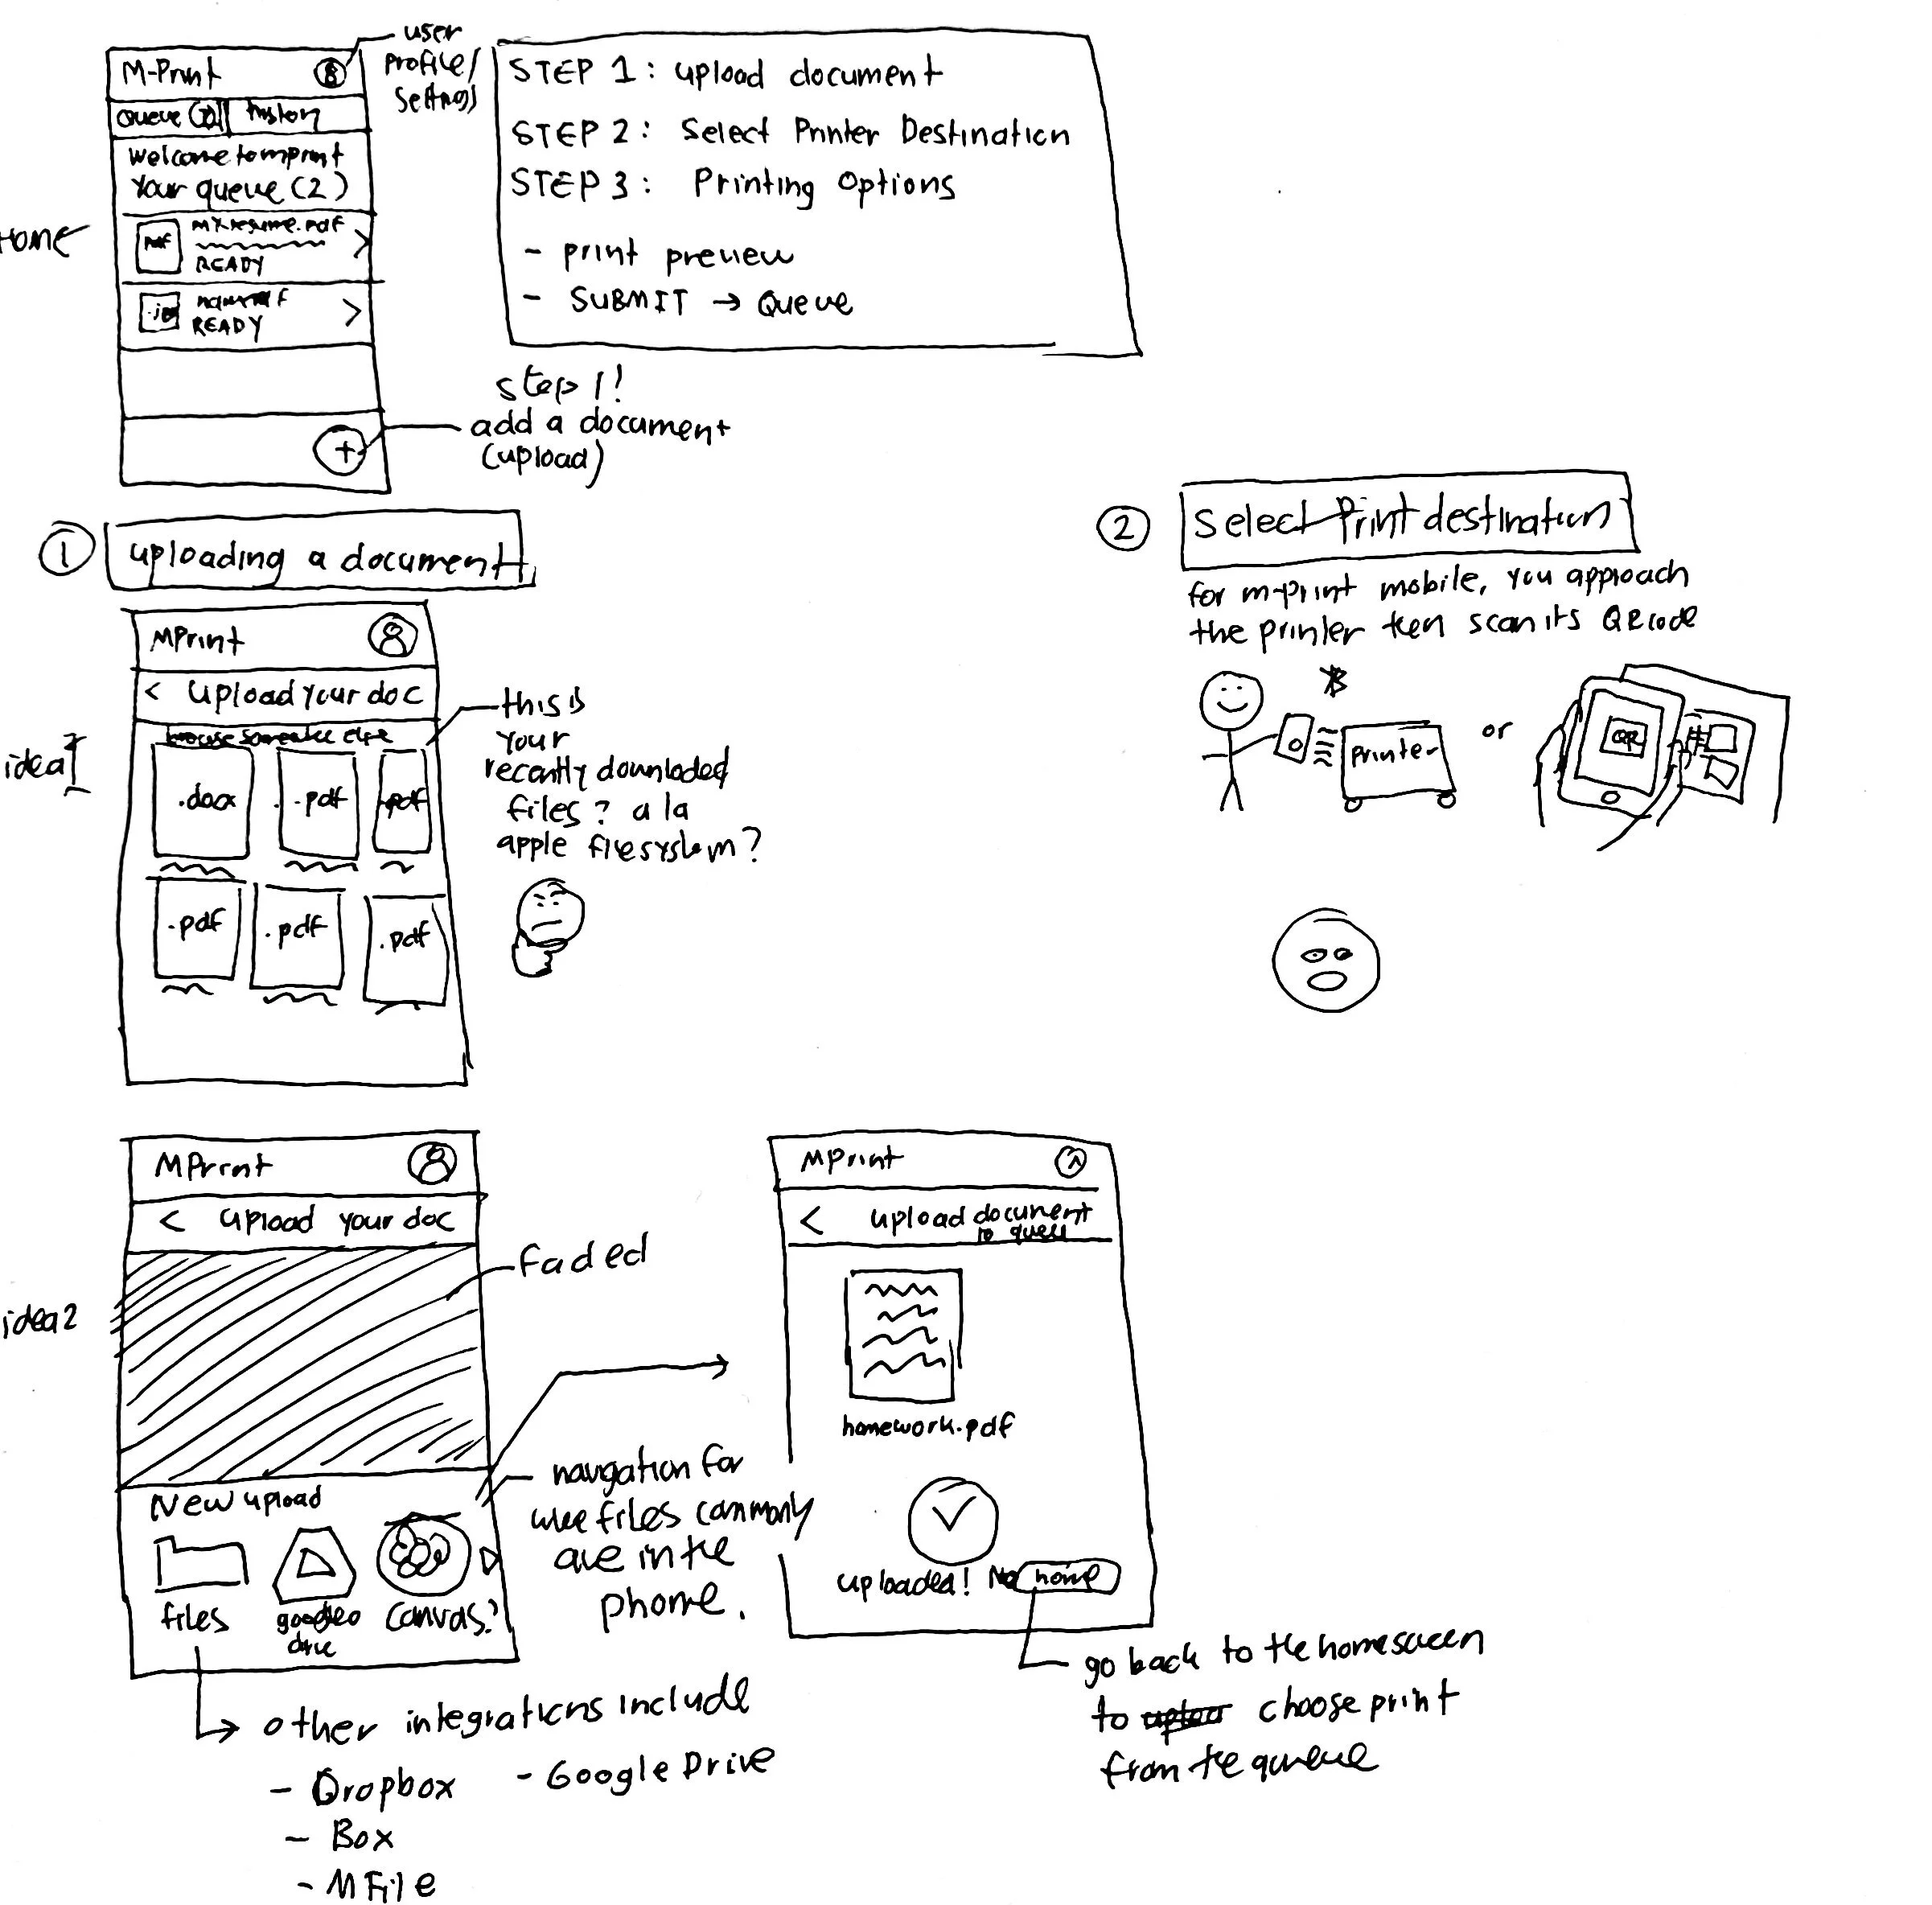 user
profile/
settings
M-Print
Queue (2) History
Welcome to mprint
Your queue (2)
pdf
myresume.pdf
READY
READY
Home
+
STEP 1: upload document
STEP 2: Select Printer Destination
STEP 3: Printing Options
- print preview
- SUBMIT → Queue
step 1!
add a document
(upload)
1 uploading a document
idea 1
MPrint
< Upload your doc
browse someplace else
.docx .pdf .pdf
.pdf .pdf .pdf
this is
your
recently downloaded
files? a la
apple filesystem?
2 Select Print destination
for m-print mobile, you approach
the printer then scan its QR code
Printer
or
QR
idea 2
MPrint
< Upload your doc
faded
New upload
files
google
drive
Canvas?
navigation for
where files commonly
are in the
phone.
→ other integrations include
- Dropbox - Google Drive
- Box
- MFile
MPrint
< upload document
to queue
homework.pdf
uploaded! home
go back to the homescreen
to choose print
from the queue